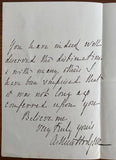 You have indeed well
deserved the distinction
& with many others I
have been surprised that
it was not long ago
conferred upon you
Believe me
very truly yours